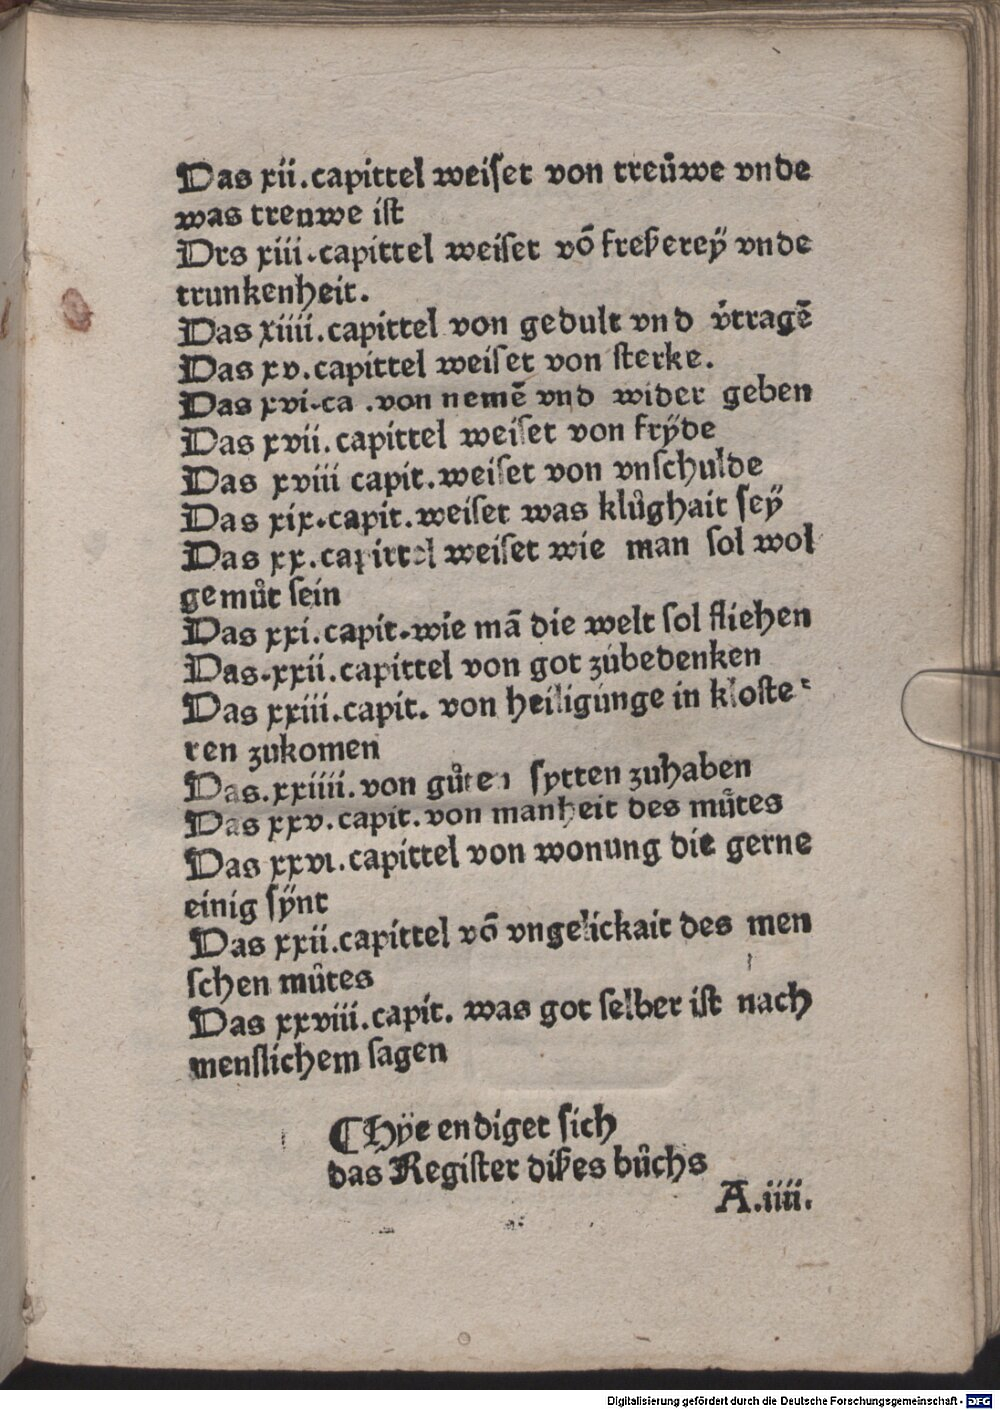 Das xii.capittel weiſet von treůwe vnde
was treuwe iſt
Drs xiii.capittel weiſet vō freßerey̋ vnde
trunkenheit.
Das xiiii.capittel von gedult vnd v̓tragē
Das xv.capittel weiſet von ſterke.
Das xvi.ca .von nemē vnd wider geben
Das xvii.capittel weiſet von frÿde
Das xviii capit.weiſet von vnſchulde
Das xix.capit.weiſet was klůghait ſeÿ
Das xx.capittel weiſet wie man ſol wol
gemůt ſein
Das xxi.capit.wie mā die welt ſol fliehen
Das.xxii.capittel von got zůbedenken
Das xxiii.capit. von heiligunge in kloſte⸗
ren zukomen
Das.xxiiii.von gůten ſytten zuhaben
Das xxv.capit.von manheit des můtes
Das xxvi.capittel von wonung die gerne
einig ſÿnt
Das xxii.capittel vō vngelickait des men
ſchen můtes
Das xxviii.capit. was got ſelber iſt nach
menſlichem ſagen
¶Hÿe endiget ſich
das Regiſter dißes bůchs
A.iiii.
Digitalisierung gefördert durch die Deutsche Forschungsgemeinschaft - DFG